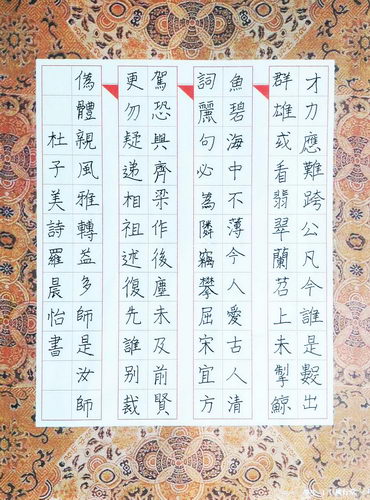 才力應難跨公凡今誰是數出
群雄或看翡翠蘭苕上未掣鯨
魚碧海中不薄今人愛古人清
詞麗句必為隣竊攀屈宋宜方
駕恐與齊梁作後塵未及前賢
更勿疑遞相祖述復先誰别裁
偽體親風雅轉益多師是汝師
杜子美詩羅晨怡書